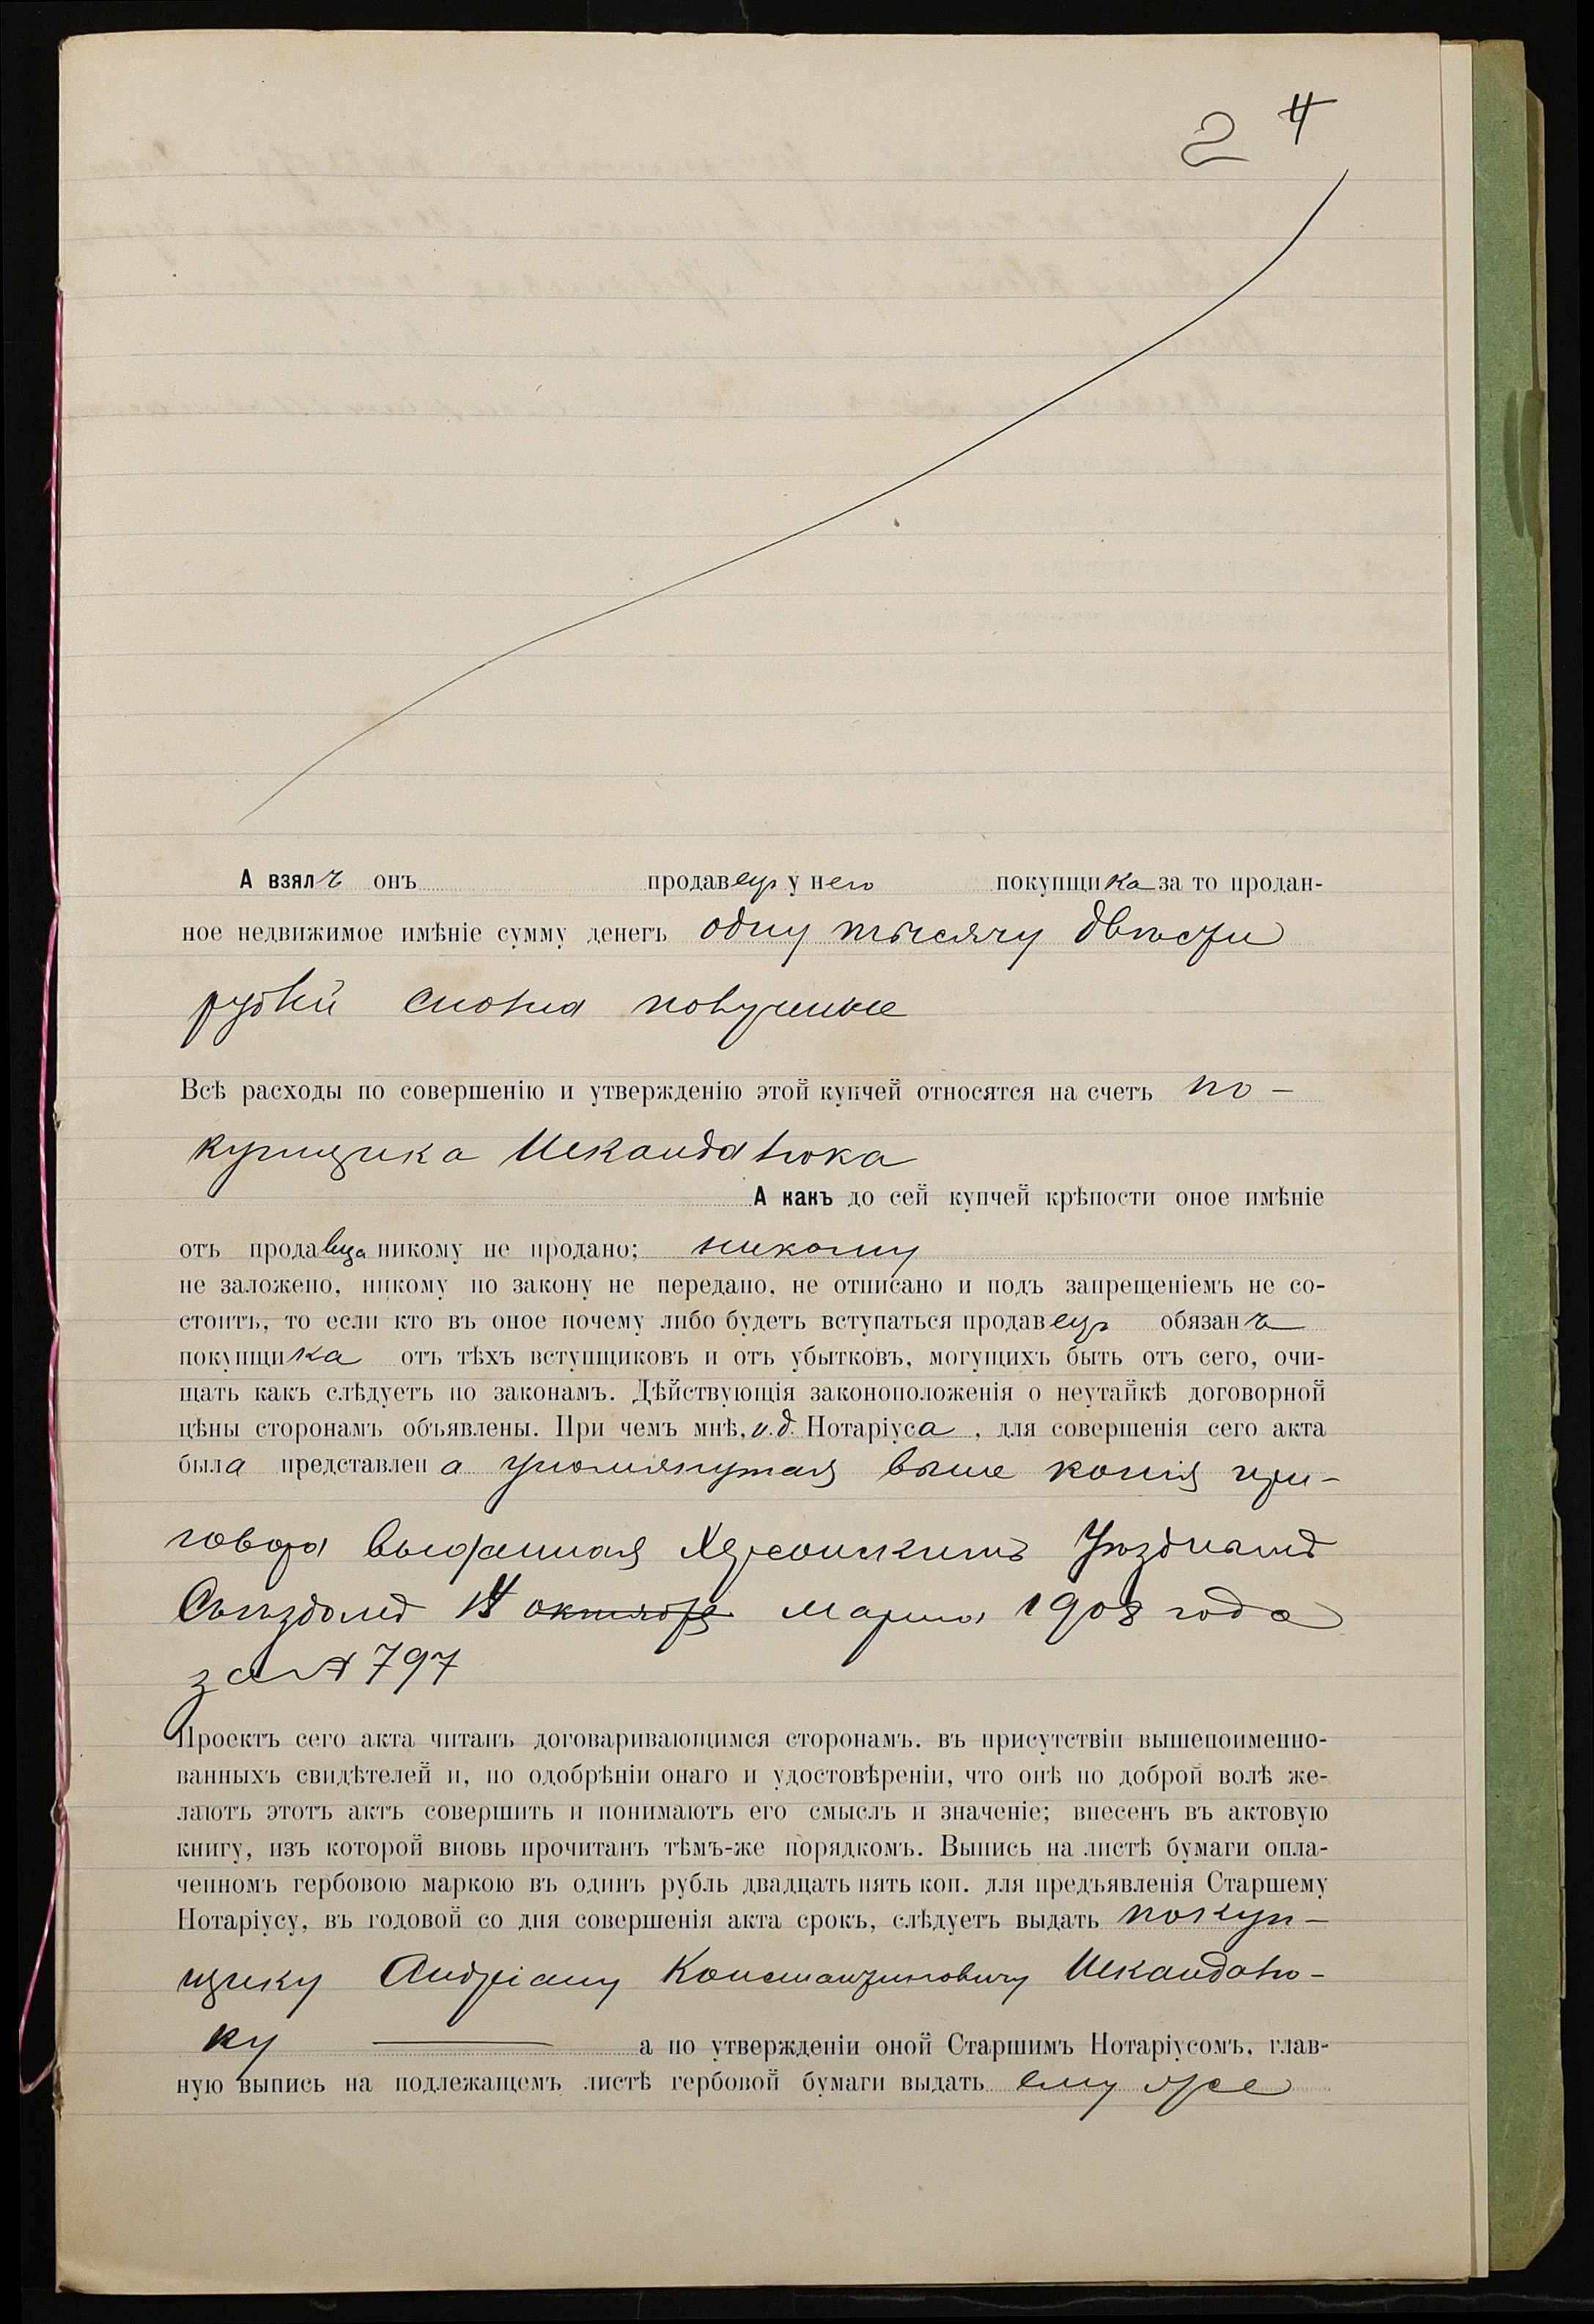 2 4
А взялъ онъ продавецъ у него покупщика за то продан-
ное недвижимое имѣніе сумму денегъ одну тысячу двѣсти
рублей сполна полученные
Всѣ расходы по совершенію и утвержденію этой купчей относятся на счетъ по-
купщика Искандалюка
А какъ до сей купчей крѣпости оное имѣніе
отъ продавца никому не продано; никому
не заложено, никому по закону не передано, не отписано и подъ запрещеніемъ не со-
стоитъ, то если кто въ оное почему либо будетъ вступаться продавецъ обязанъ
покупщика отъ тѣхъ вступщиковъ и отъ убытковъ, могущихъ быть отъ сего, очи-
щать какъ слѣдуетъ по законамъ. Дѣйствующія законоположенія о неутайкѣ договорной
цѣны сторонамъ объявлены. При чемъ мнѣ, и.д. Нотаріуса, для совершенія сего акта
была представлена упомянутая выше копія при-
говора выданная Херсонскимъ Уѣзднымъ
Съѣздомъ октября марта 1908 года
за № 797
Проектъ сего акта читанъ договаривающимся сторонамъ. въ присутствіи вышепоименно-
ванныхъ свидѣтелей и, по одобрѣніи онаго и удостовѣреніи, что онѣ по доброй волѣ же-
лаютъ этотъ актъ совершить и понимаютъ его смыслъ и значеніе; внесенъ въ актовую
книгу, изъ которой вновь прочитанъ тѣмъ-же порядкомъ. Выпись на листѣ бумаги опла-
ченномъ гербовою маркою въ одинъ рубль двадцать пять коп. для предъявленія Старшему
Нотаріусу, въ годовой со дня совершенія акта срокъ, слѣдуетъ выдать покуп-
щику Андріану Константиновичу Искандалю-
ку а по утвержденіи оной Старшимъ Нотаріусомъ, глав-
ную выпись на подлежащемъ листѣ гербовой бумаги выдать ему же